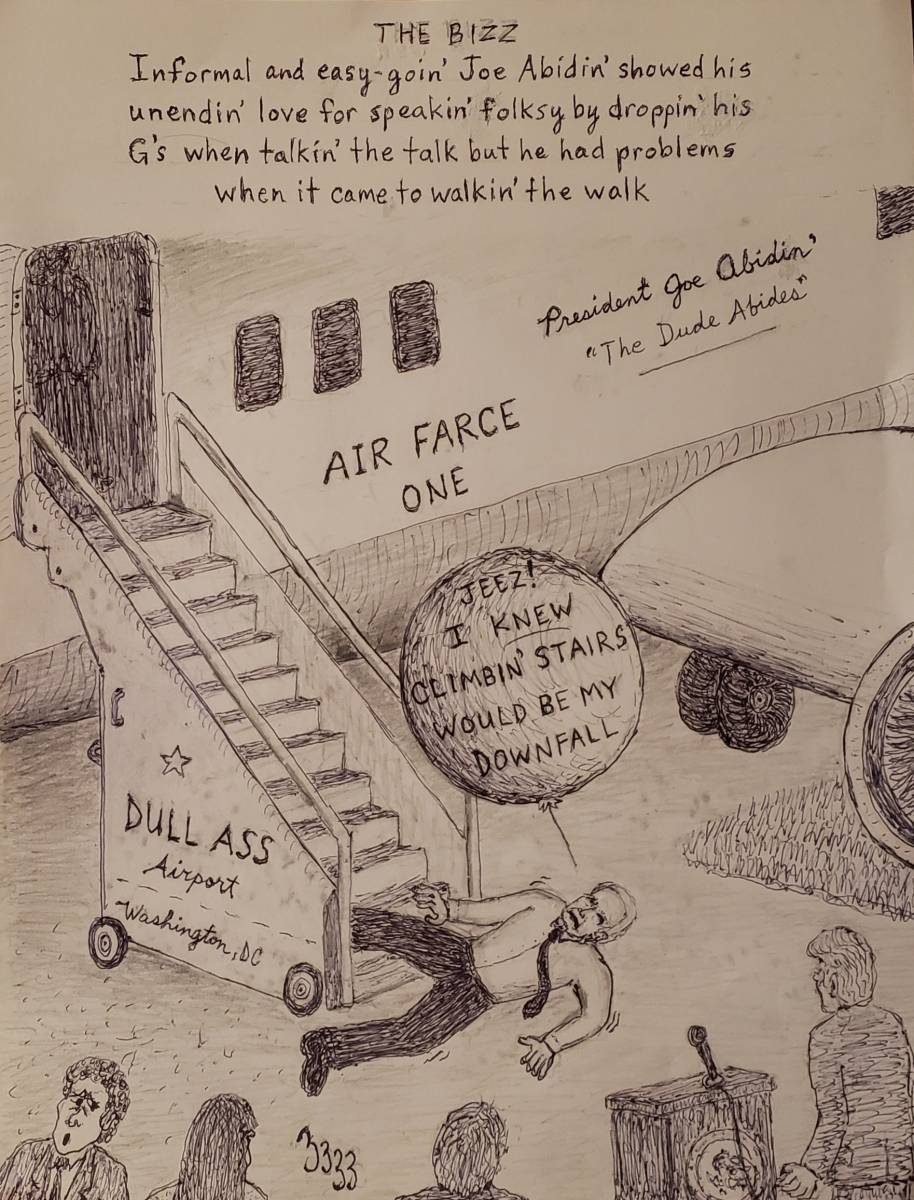 THE BIZZ
Informal and easy-goin' Joe Abidin' showed his
unendin' love for speakin' folksy by droppin' his
G's when talkin' the talk but he had problems
when it came to walkin' the walk
President Joe Abidin'
"The Dude Abides"
AIR FARCE
ONE
JEEZ!
I KNEW
CLIMBIN' STAIRS
WOULD BE MY
DOWNFALL
DULL ASS
Airport
Washington, DC